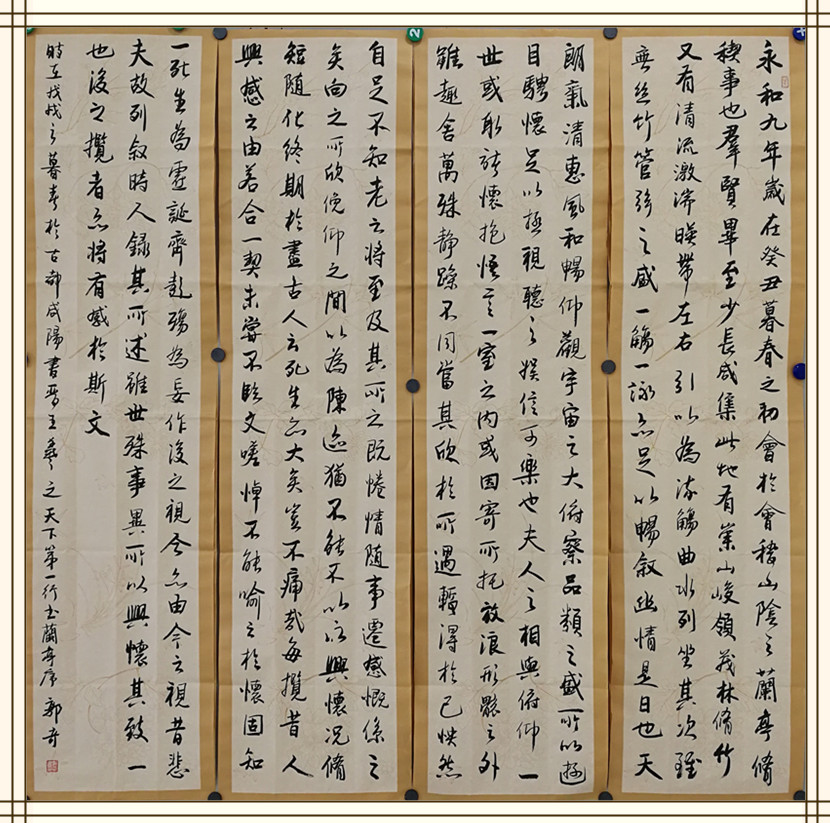 永和九年歲在癸丑暮春之初會於會稽山陰之蘭亭脩
稧事也羣賢畢至少長咸集此地有崇山峻領茂林脩竹
又有清流激湍暎帶左右引以為流觴曲水列坐其次雖
無絲竹管弦之盛一觴一詠亦足以暢敘幽情是日也天
朗氣清惠風和暢仰觀宇宙之大俯察品類之盛所以遊
目騁懷足以極視聽之娛信可樂也夫人之相與俯仰一
世或取諸懷抱悟言一室之內或因寄所托放浪形骸之外
雖趣舍萬殊靜躁不同當其欣於所遇輒得於己怏然
自足不知老之將至及其所之既惓情隨事遷感慨係之
矣向之所欣俛仰之間以為陳迹猶不能不以之興懷況脩
短隨化終期於盡古人云死生亦大矣豈不痛哉每攬昔人
興感之由若合一契未嘗不臨文嗟悼不能喻之於懷固知
一死生為虛誕齊彭殤為妄作後之視今亦由今之視昔悲
夫故列敘時人錄其所述雖世殊事異所以興懷其致一
也後之攬者亦將有感於斯文
時在戊戌之暮春於古都咸陽書晉王羲之天下第一行書蘭亭序 郭奇
2